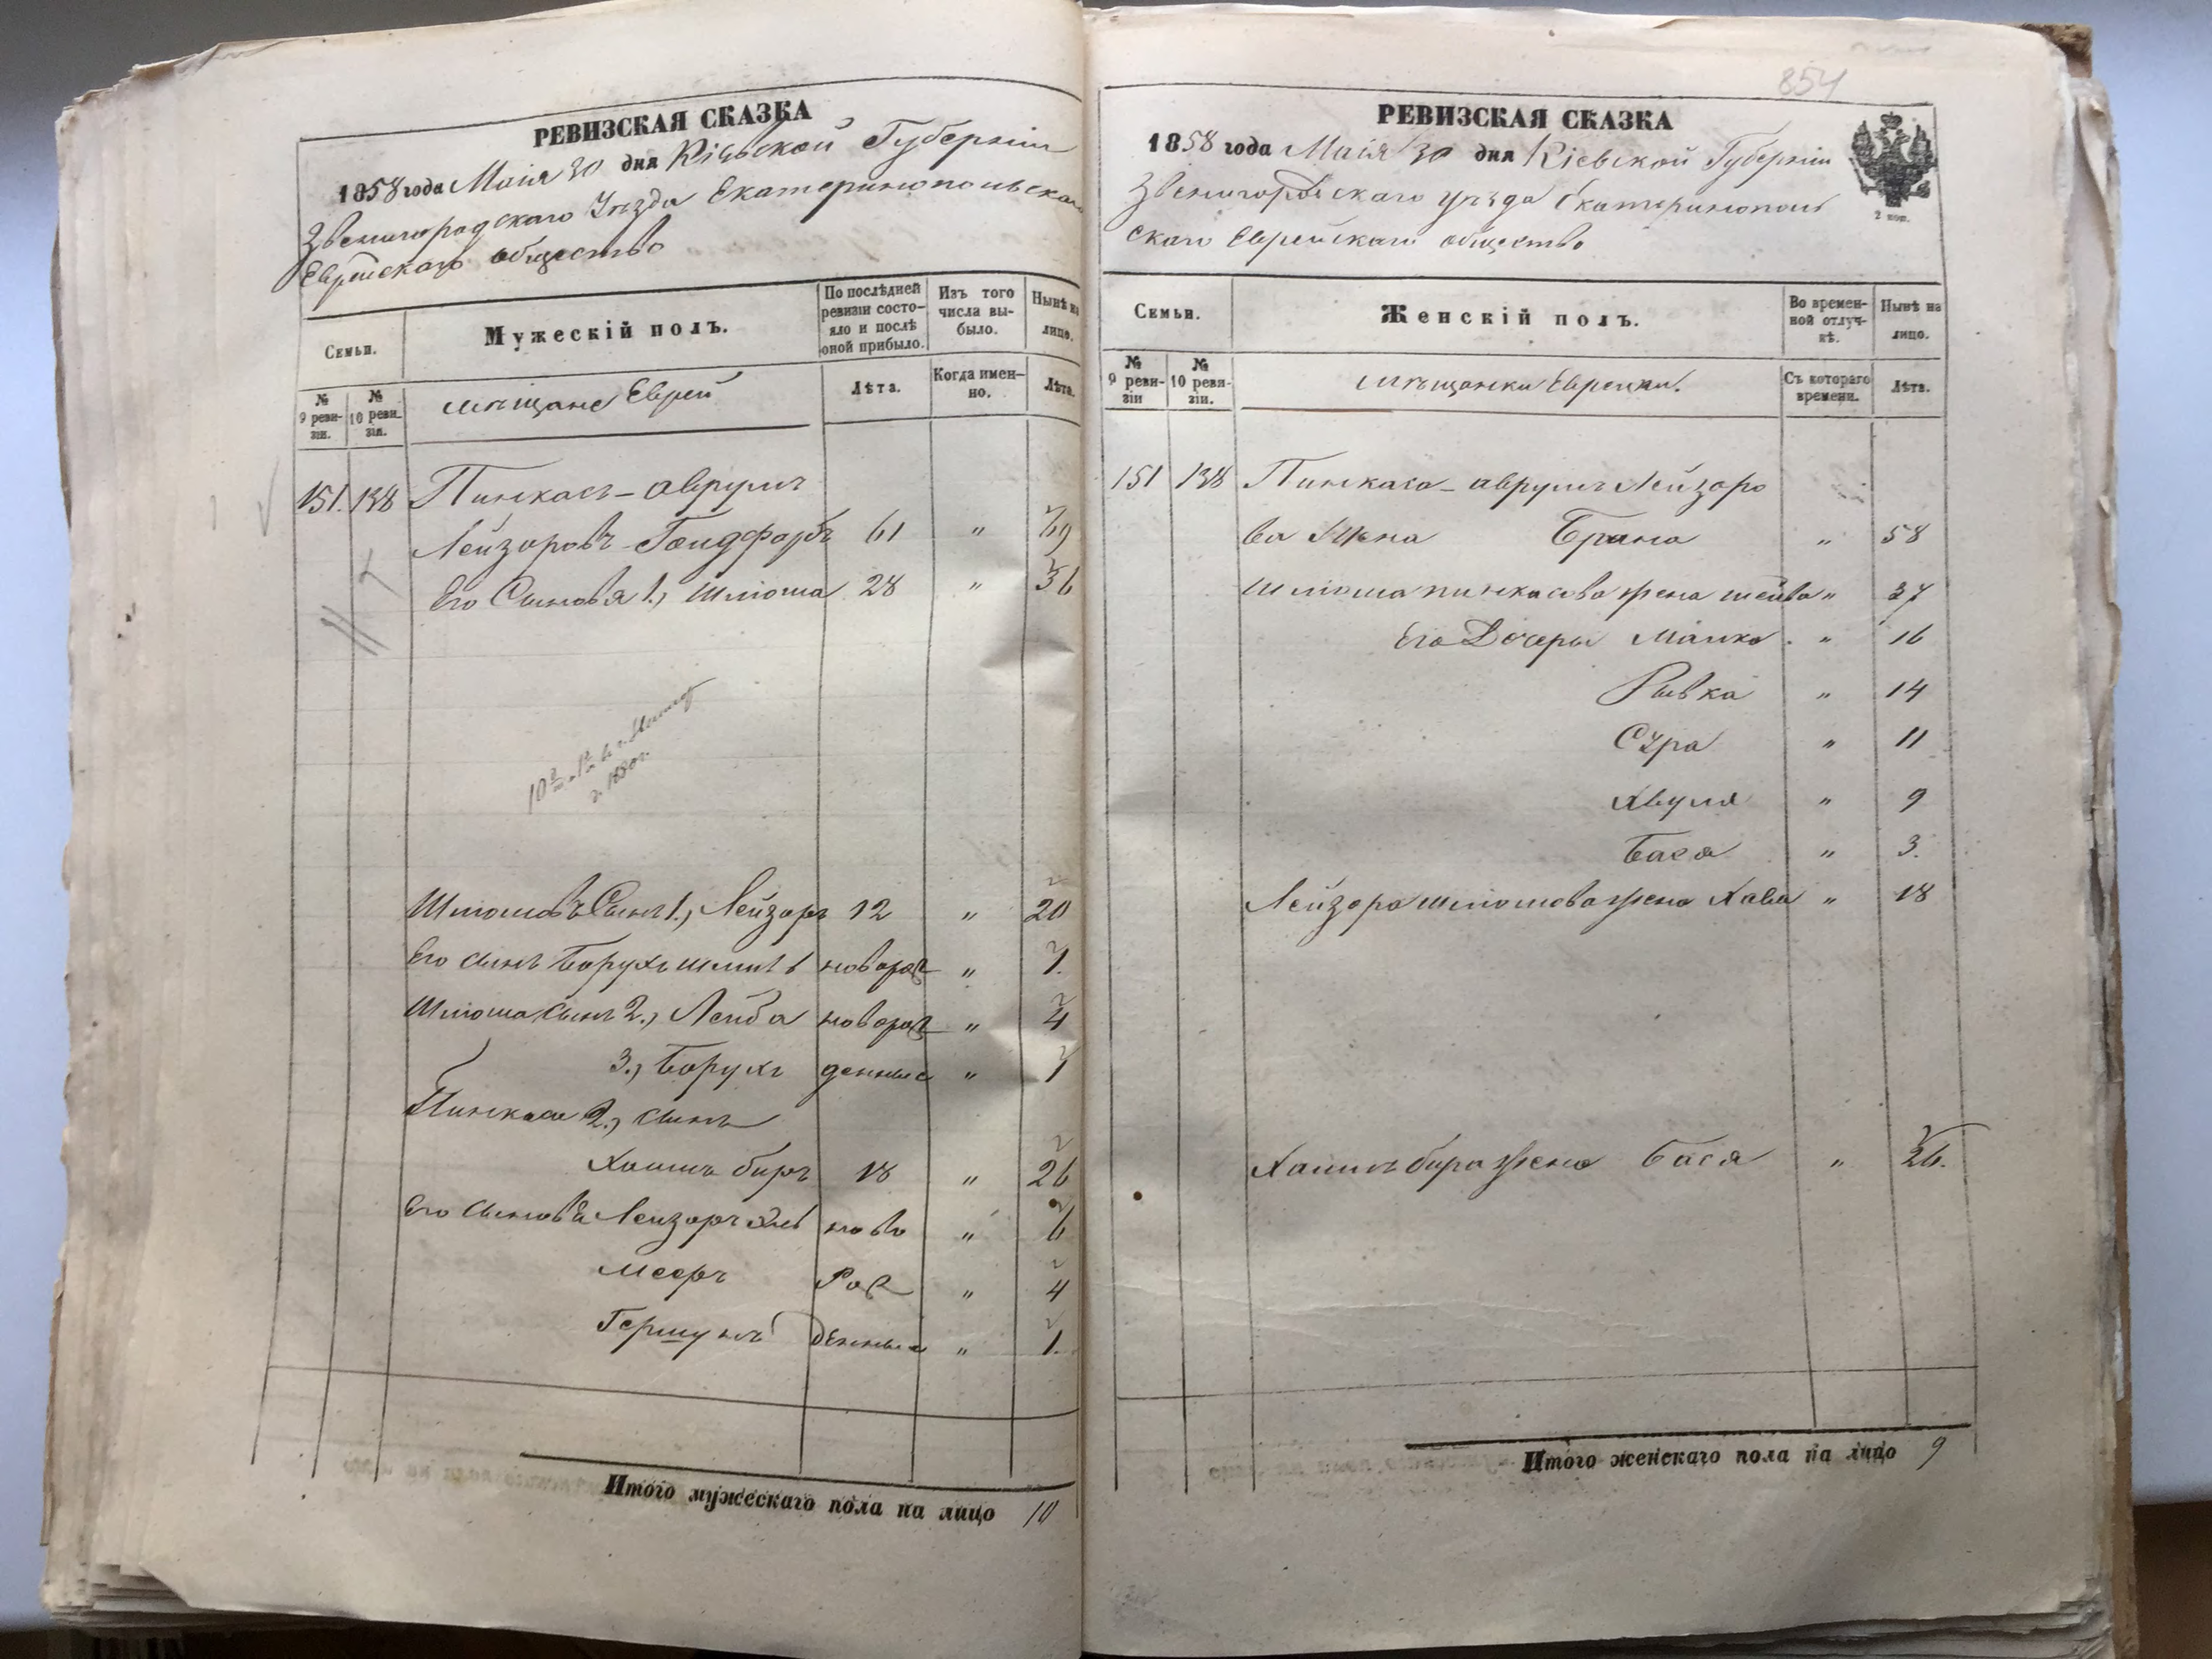 РЕВИЗСКАЯ СКАЗКА
1858 года Маія 30 дня Кіевской Губерніи
Звенигородскаго Уѣзда Екатеринопольскаго
Еврейскаго общества
Семьи.
Мужескій полъ.
По послѣдней ревизіи состояло и послѣ оной прибыло.
Изъ того числа выбыло.
Нынѣ на лицо.
№ 9 ревизіи.
№ 10 ревизіи.
мѣщане Еврей
Лѣта.
Когда именно.
Лѣта.
151. 138 Пинкасъ-Аврумъ
Лейзоровъ-Гольдфарбъ 61 " 69
Его Сыновья 1., Шлиома 28 " 36
1880 г.
Шлиомовъ Сынъ 1., Лейзоръ 12 " 20
Его сынъ Борухъ новорож " 1.
Шлиома сынъ 2., Лейба новорож " 4
3., Борухъ денные " 1
Пинкаса 2., сынъ
Хаимъ биръ 18 " 26
Его сыновья Лейзоръ ново " 6
Мееръ рож " 4
Гершунъ денные " 1.
Итого мужескаго пола на лицо 10
854
РЕВИЗСКАЯ СКАЗКА
1858 года Маія 30 дня Кіевской Губерніи
Звенигородскаго уѣзда Екатеринополь
скаго Еврейскаго общества
2 коп.
Семьи.
Женскій полъ.
Во временной отлучкѣ.
Нынѣ на лицо.
№ 9 ревизіи
№ 10 ревизіи.
мѣщанки Еврейки.
Съ котораго времени.
Лѣта.
151 138 Пинкаса-аврумъ Лейзоро
ва Жена Брана " 58
Шлиома пинкасова жена шейва " 37
Его Дочеры Малка " 16
Рывка " 14
Сура " 11
Хвуля " 9
Бася " 3.
Лейзора шлиомова жена Хава " 18
Хаимъ бира жена Бася " 26.
Итого женскаго пола на лицо 9